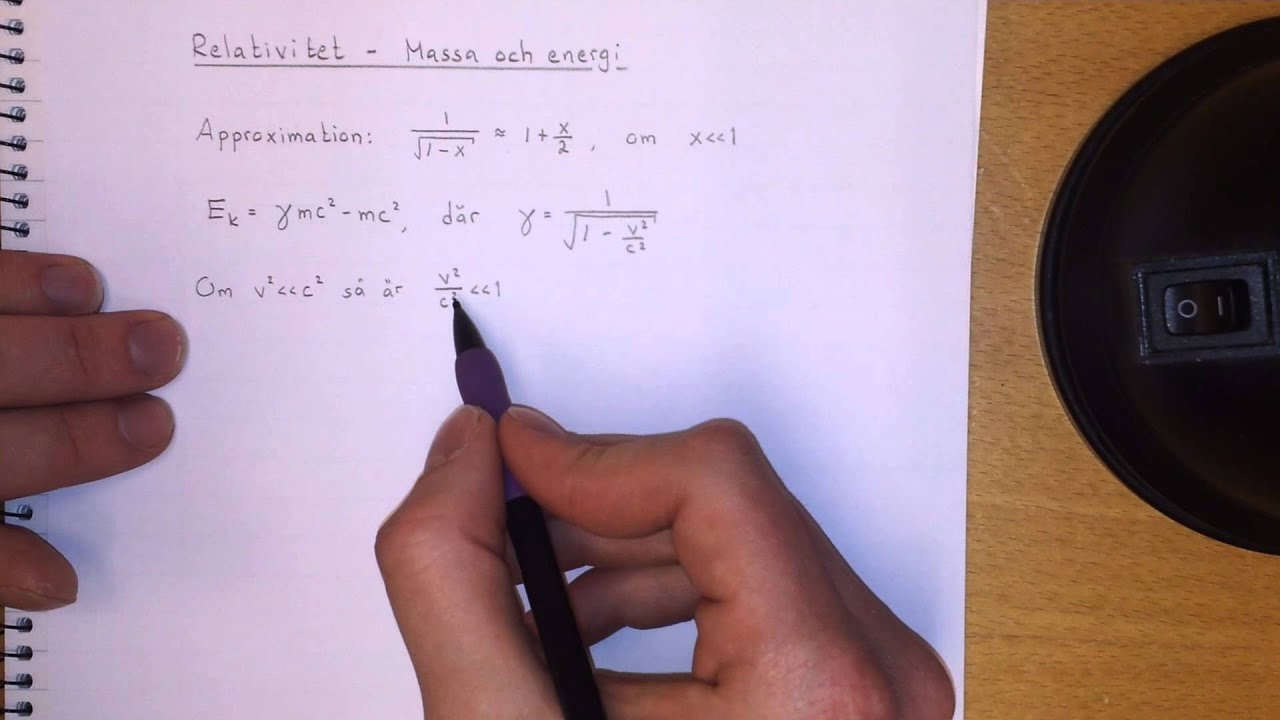 Relativitet - Massa och energi
Approximation: 1/√(1-x) ≈ 1 + x/2, om x<<1
Eₖ = γmc² - mc², där γ = 1/√(1 - v²/c²)
Om v²<<c² så är v²/c² <<1
O I